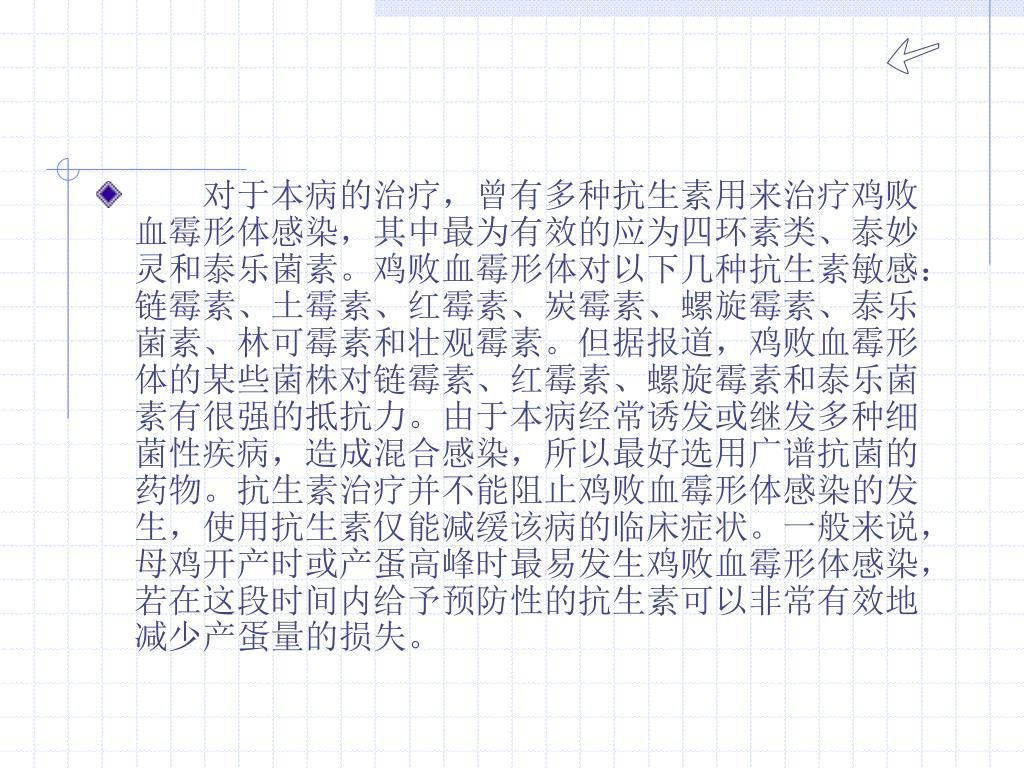 对于本病的治疗，曾有多种抗生素用来治疗鸡败
血霉形体感染，其中最为有效的应为四环素类、泰妙
灵和泰乐菌素。鸡败血霉形体对以下几种抗生素敏感：
链霉素、土霉素、红霉素、炭霉素、螺旋霉素、泰乐
菌素、林可霉素和壮观霉素。但据报道，鸡败血霉形
体的某些菌株对链霉素、红霉素、螺旋霉素和泰乐菌
素有很强的抵抗力。由于本病经常诱发或继发多种细
菌性疾病，造成混合感染，所以最好选用广谱抗菌的
药物。抗生素治疗并不能阻止鸡败血霉形体感染的发
生，使用抗生素仅能减缓该病的临床症状。一般来说，
母鸡开产时或产蛋高峰时最易发生鸡败血霉形体感染，
若在这段时间内给予预防性的抗生素可以非常有效地
减少产蛋量的损失。